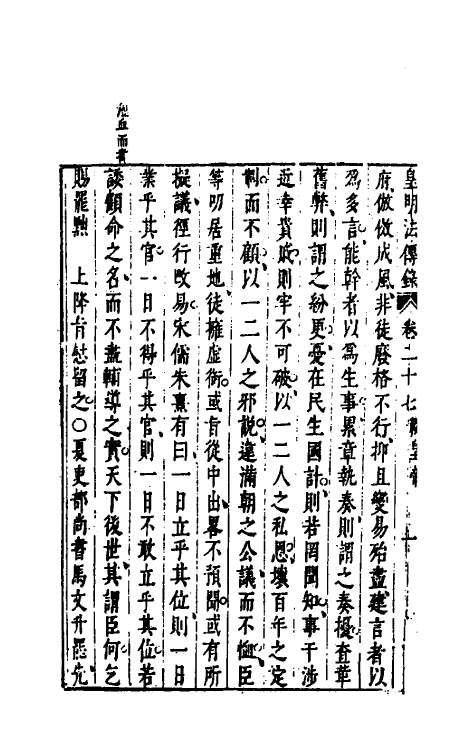 皇明法傳錄 卷二十七
府倣傚成風非徒廢格不行抑且變易殆盡建言者以
爲多言能幹者以爲生事累章執奏則謂之奏擾查革
舊弊則謂之紛更憂在民生國計則若罔聞知事干涉
近幸貴戚則牢不可破以一二人之私恩壞百年之定
制而不顧以一二人之邪説違滿朝之公議而不恤臣
等叨居重地徒擁虛銜或旨從中出畧不預聞或有所
擬議徑行改易宋儒朱熹有曰一日立乎其位則一日
業乎其官一日不得乎其官則一日不敢立乎其位若
諉顧命之名而不盡輔導之實天下後世其謂臣何乞
賜罷黜 上降旨慰留之○夏吏部尚書馬文升罷先
血而書